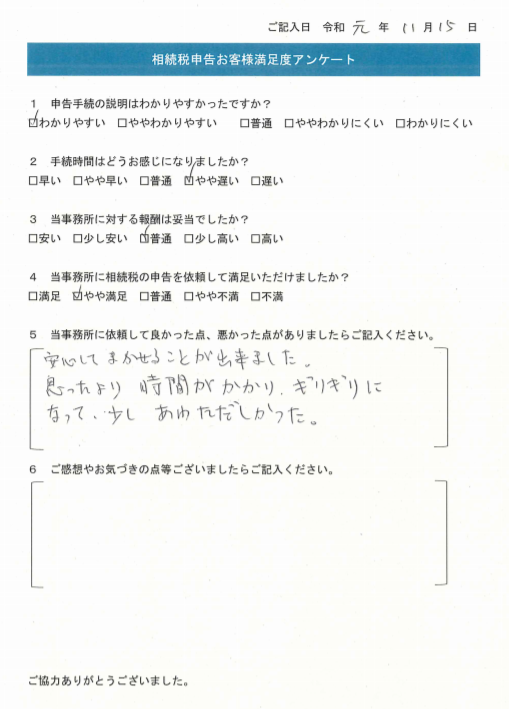 ご記入日 令和 元 年 11 月 15 日
相続税申告お客様満足度アンケート
1 申告手続の説明はわかりやすかったですか？
☑わかりやすい □ややわかりやすい □普通 □ややわかりにくい □わかりにくい
2 手続時間はどうお感じになりましたか？
□早い □やや早い □普通 ☑やや遅い □遅い
3 当事務所に対する報酬は妥当でしたか？
□安い □少し安い ☑普通 □少し高い □高い
4 当事務所に相続税の申告を依頼して満足いただけましたか？
□満足 ☑やや満足 □普通 □やや不満 □不満
5 当事務所に依頼して良かった点、悪かった点がありましたらご記入ください。
安心してまかせることが出来ました。
思ったより時間がかかり、ギリギリに
なって、少しあわただしかった。
6 ご感想やお気づきの点等ございましたらご記入ください。
ご協力ありがとうございました。